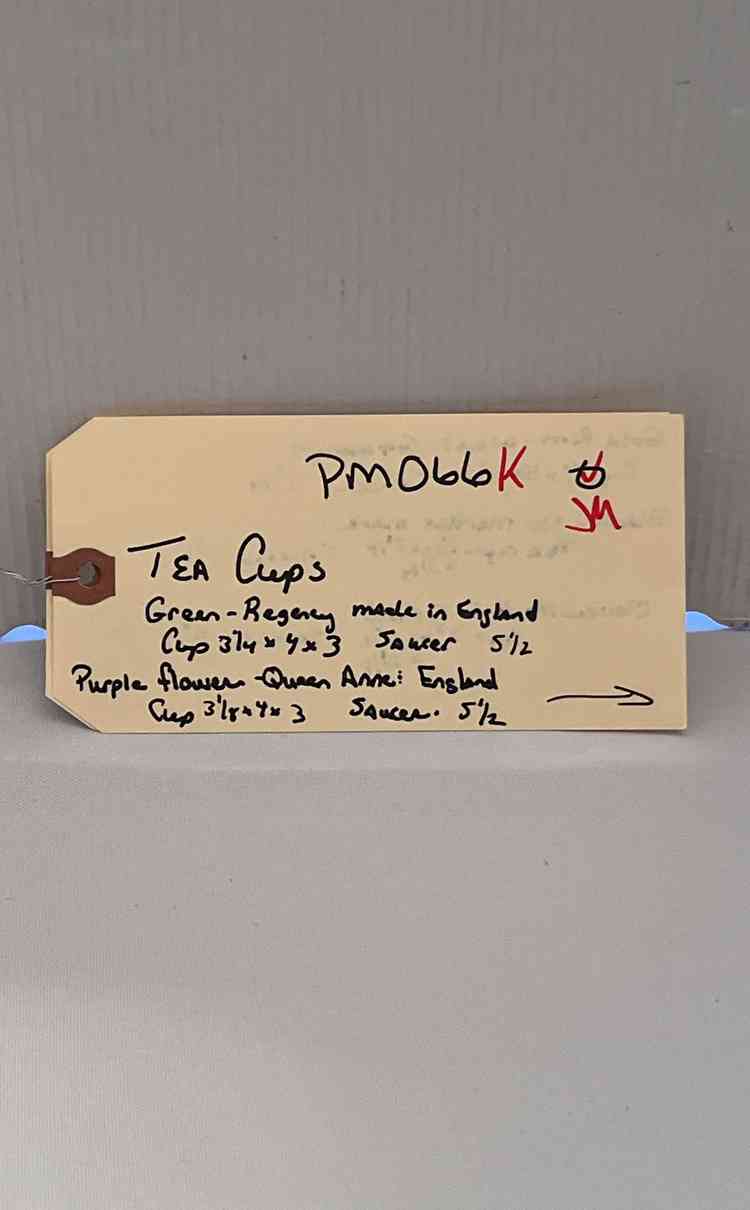 PM066K
JM
TEA Cups
Green-Regency made in England
Cup 3 1/4 x 4 x 3 SAUCER 5 1/2
Purple flower-Queen Anne: England
Cup 3 1/8 x 4 x 3 SAUCER. 5 1/2